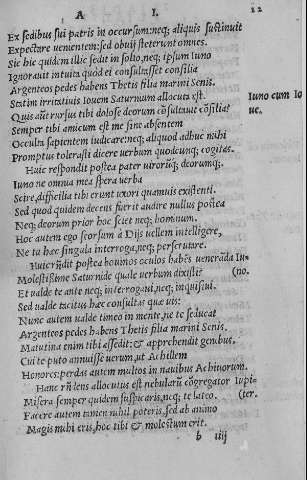 A I. 22
Ex sedibus sui patris in occursum: neq; aliquis sustinuit
Expectare uenientem: sed obuij steterunt omnes.
Sic hic quidem illic sedit in solio, neq; ipsum Iuno
Ignorauit intuita quod ei consuluisset consilia
Argenteos pedes habens Thetis filia marini Senis.
Statim irrisiuis Iouem Saturnium allocuta est.
Quis aũt rursus tibi dolose deorum cõsuluit cõsilia?
Iuno cum Io
ue.
Semper tibi amicum est me sine absentem
Occulta sapientem iudicare: neq; aliquod adhuc mihi
Promptus tolerasti dicere uerbum quodcunq; cogitas.
Huic respondit postea pater uirorũq; deorumq;.
Iuno ne omnia mea spera uerba
Scire, difficilia tibi erunt uxori quamuis existenti.
Sed quod quidem decens fuerit audire nullus postea
Neq; deorum prior hoc sciet neq; hominum.
Hoc autem ego seorsum à Dijs uellem intelligere,
Ne tu hæc singula interroga, neq; perscrutare.
Huic rñdit postea bouinos oculos habẽs uenerãda Iu
Molestissime Saturnide quale uerbum dixisti? (no.
Et ualde te ante neq; interrogaui, neq; inquisiui.
Sed ualde tacitus hæc consultas quæ uis:
Nunc autem ualde timeo in mente, ne te seducat
Argenteos pedes habens Thetis filia marini Senis.
Matutina enim tibi assedit: & apprehendit genibus.
Cui te puto annuisse uerum, ut Achillem
Honores: perdas autem multos in nauibus Achiuorum.
Hanc rñdens allocutus est nebularũ cõgregator Iupi-
Misera semper quidem suspicaris, neq; te lateo. (ter.
Facere autem tamen nihil poteris, sed ab animo
Magis mihi eris, hoc tibi & molestum erit.
b iiij